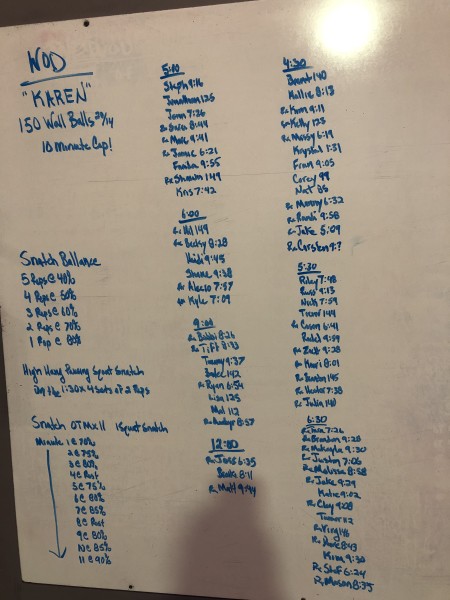 WOD
"KAREN"
150 Wall Balls 20/14
10 Minute Cap!
Snatch Ballance
5 Reps @ 40%
4 Reps @ 50%
3 Reps @ 60%
2 Reps @ 70%
1 Rep @ 80%
High Hang Squat Snatch
On the 1:30 x 4 sets of 2 Reps
Snatch OTM x 11 1 Squat Snatch
Minute 1 @ 70%
2 @ 75%
3 @ 80%
4 @ Rest
5 @ 75%
6 @ 80%
7 @
8 @ Rest
9 @ 80%
10 @ 85%
11 @ 90%
5:00
Steph 9:16
Jonathan 125
Jenn 7:36
8:44
Rx Marc 9:41
Rx Jamie 6:21
9:55
Rx Shawn 149
Kris 7:42
6:00
149
Becky 8:28
Heidi 9:45
Shane 9:38
Rx Alecio 7:57
Kyle 7:09
9:00
Rx Bobbi 8:26
Rx Tiff 8:33
Tammy 9:37
142
Rx Ryan 6:54
Lisa 125
Mel 112
8:57
12:00
Rx 6:35
8:11
Rx Matt 9:44
4:30
Brent 140
Hallie 8:13
Rx 9:11
Kelly 123
Rx Missy 6:19
Krystal
Fran 9:05
Corey 99
Nat 85
Rx 6:32
Rx Randi 9:58
Jake 5:09
Rx Carsten 9:?
5:30
Riley 7:48
Russ 9:13
7:59
Trevor 144
Rx 6:41
9:59
Rx Zack 9:28
Rx Kari 8:01
Rx 145
Rx Hector 7:38
Rx Julia 140
6:30
Rx 7:26
Rx Brandon 9:28
Rx Makayla 9:30
Rx Justin 7:06
Rx Melissa 8:58
Rx Jake 9:29
Katie 9:02
Rx Clay 9:08
112
Rx
Rx 8:43
Kim 9:30
Rx Stef 6:24
Rx Mason 8:35